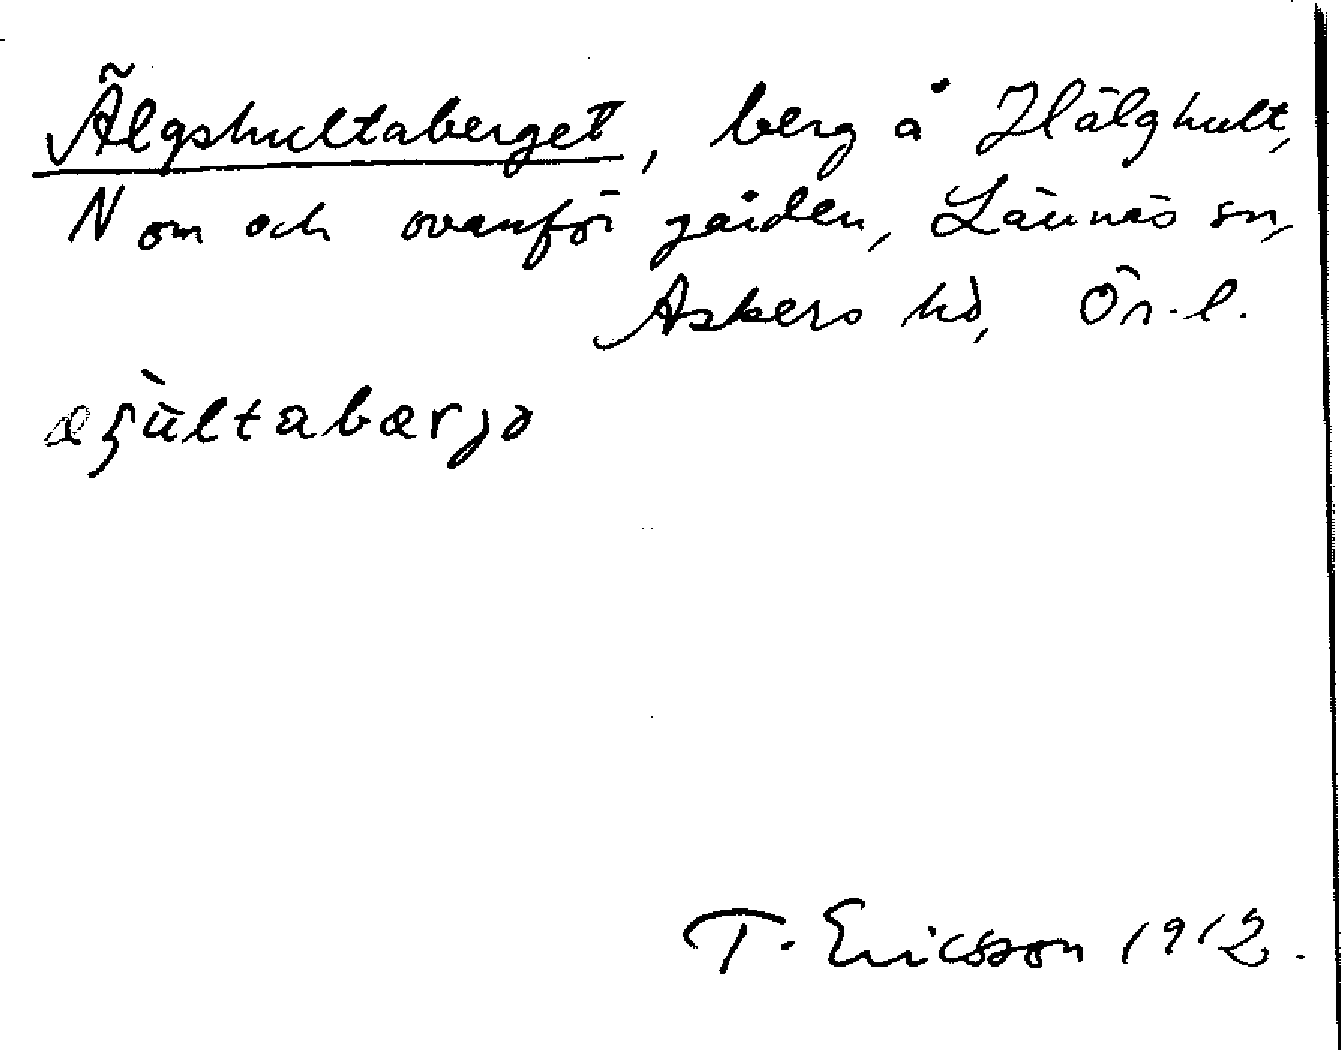 Älgshultaberget, berg å Hälghult,
N om och ovanför gården, Lännäs sn,
Askers hd, Ör. l.
T. Ericsson 1912.